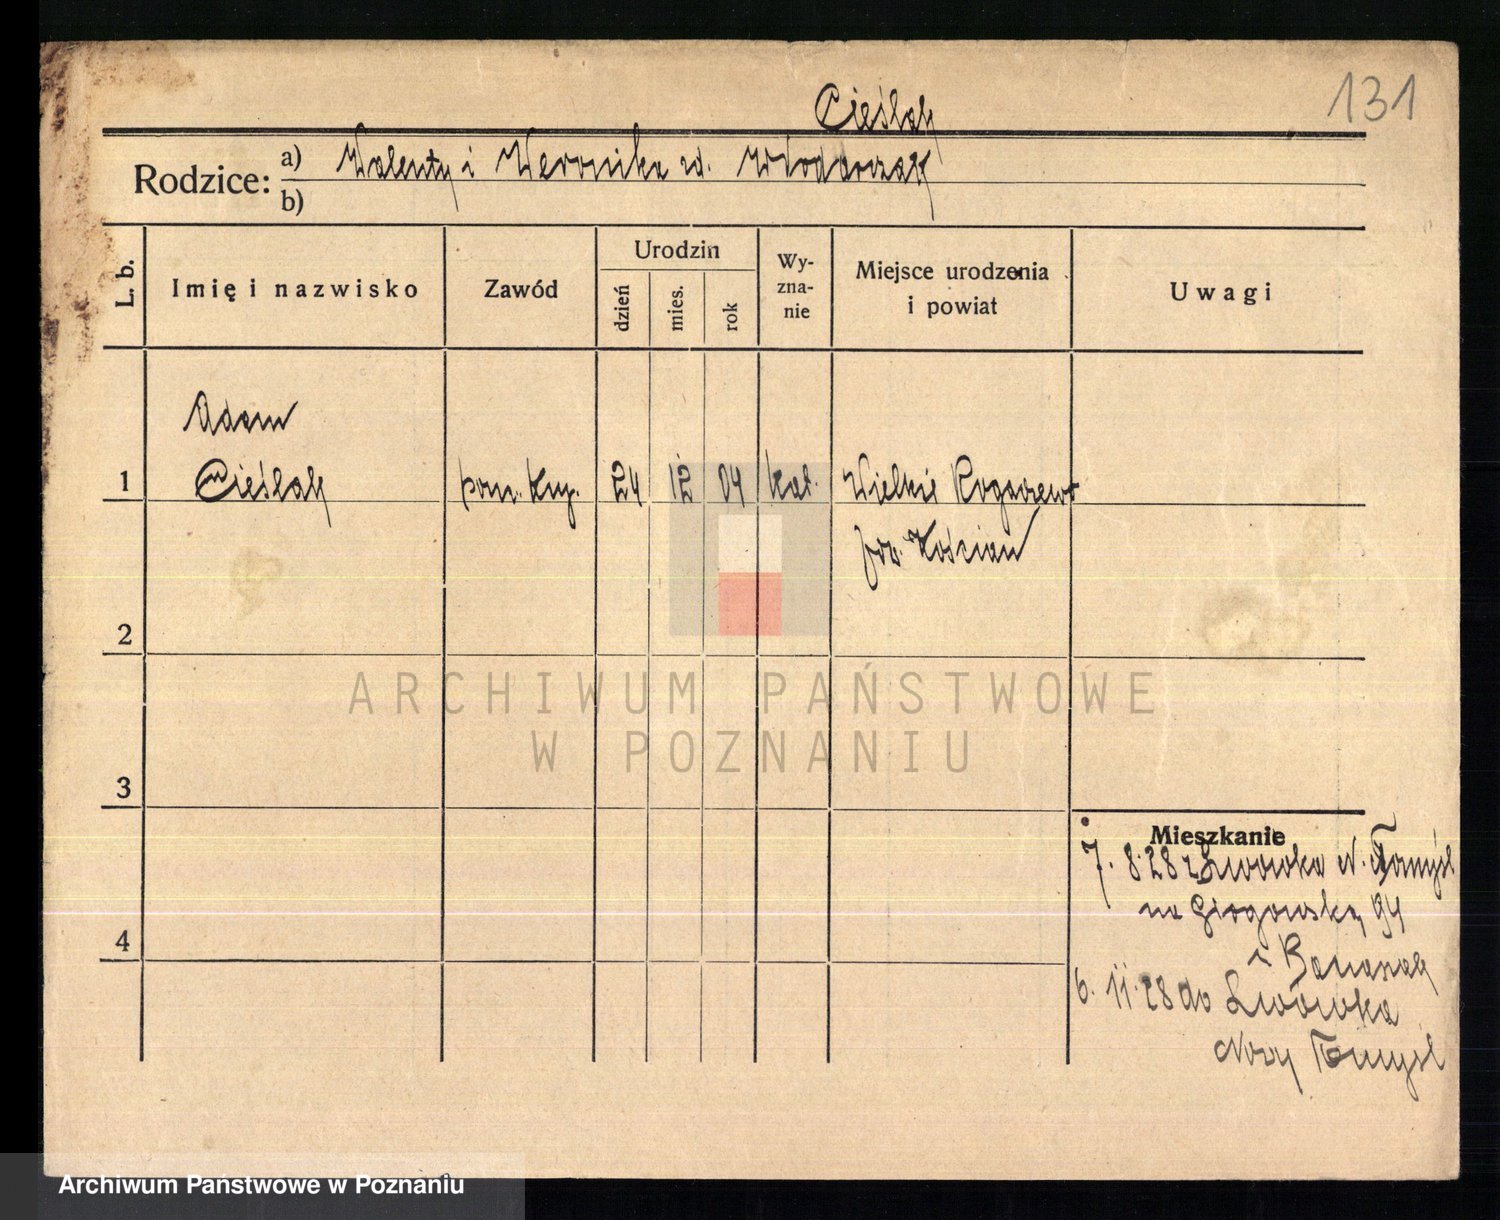 131
Cieślak
Rodzice: a) Walenty i Weronika ur. Włodarczak
b)
L. b. Imię i nazwisko Zawód Urodzin dzień mies. rok Wy-zna-nie Miejsce urodzenia i powiat Uwagi
Adam
1 Cieślak pom. kup. 24 12 04 kat. Wielkie Rogaczewo
pow. Kościan
2
ARCHIWUM PAŃSTWOWE
W POZNANIU
3
Mieszkanie
7. 8.28 z Lwówka N. Tomyśl
na Głogowską 94
Banaszak
4
6. 11.28 do Lwówka
Nowy Tomyśl
Archiwum Państwowe w Poznaniu